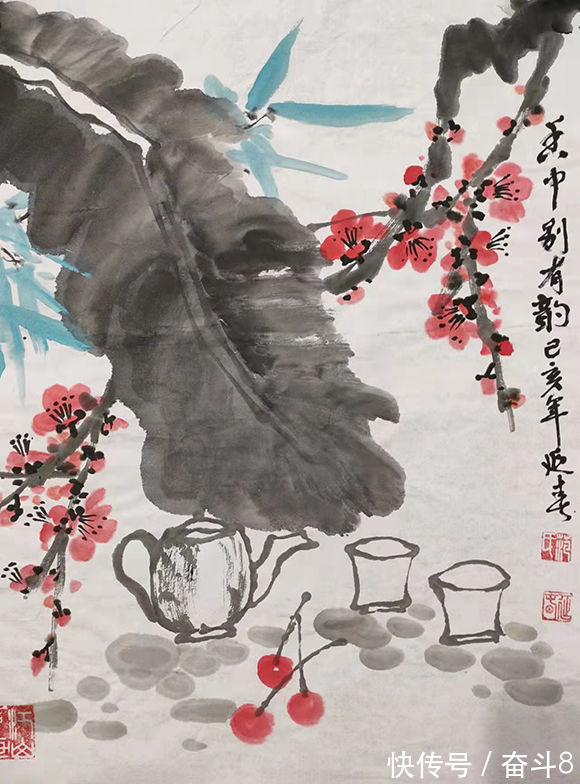 香中别有韵己亥年延春
快传号 / 奋斗8